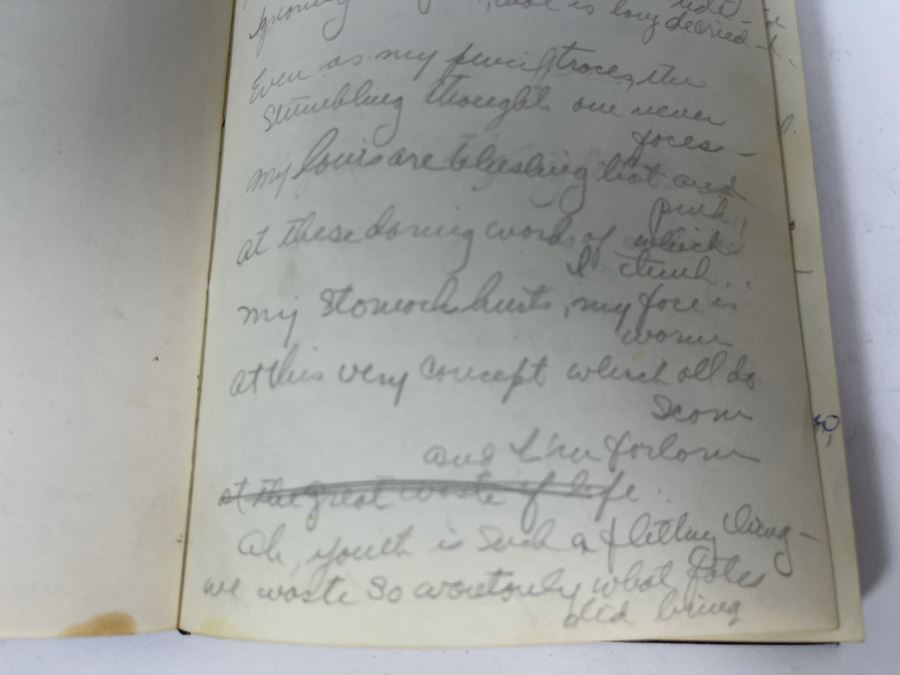 that is long denied -
Even as my pencil traces, the
stumbling thoughts one never
faces -
my are blushing hot and
pink!
at these daring words of which
I think..
my stomach hurts, my face is
warm
at this very concept which all do
scorn
and I'm forlorn
at the great waste of life.
Ah, youth is such a fleeting thing -
we waste so wantonly what fates
did bring